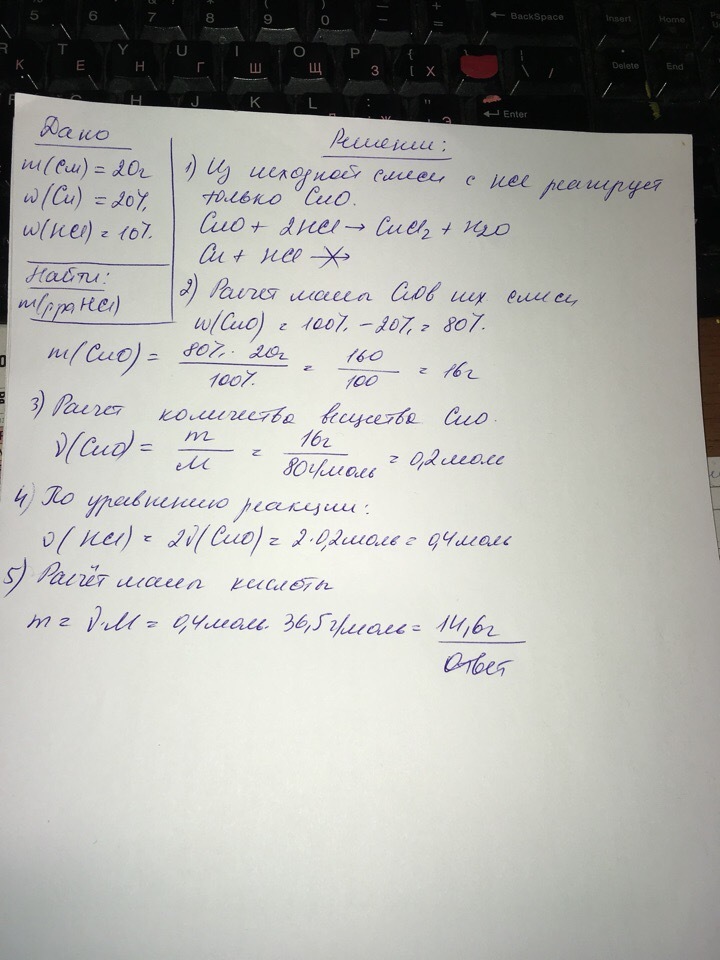 - + BackSpace Insert Home
6 7 8 9 0 - =
Y U I O P { [ Delete End
К Е Н Г Ш Щ З Х
H J K L : ; " Enter
Дано
m(см) = 20г
w(Cu) = 20%
w(HCl) = 10%
Найти:
m(рраHCl)
Решении:
1) Из исходной смеси с HCl реагирует
только CuO.
CuO + 2HCl → CuCl2 + H2O
Cu + HCl →
2) Расчет массы CuO в их смеси
w(CuO) = 100% - 20% = 80%.
m(CuO) = 80% · 20г / 100% = 160 / 100 = 16г
3) Расчет количества вещества CuO.
ν(CuO) = m / M = 16г / 80г/моль = 0,2моль
4) По уравнению реакции:
ν(HCl) = 2ν(CuO) = 2·0,2моль = 0,4моль
5) Расчёт массы кислоты
m = ν·M = 0,4моль · 36,5г/моль = 14,6г
Ответ